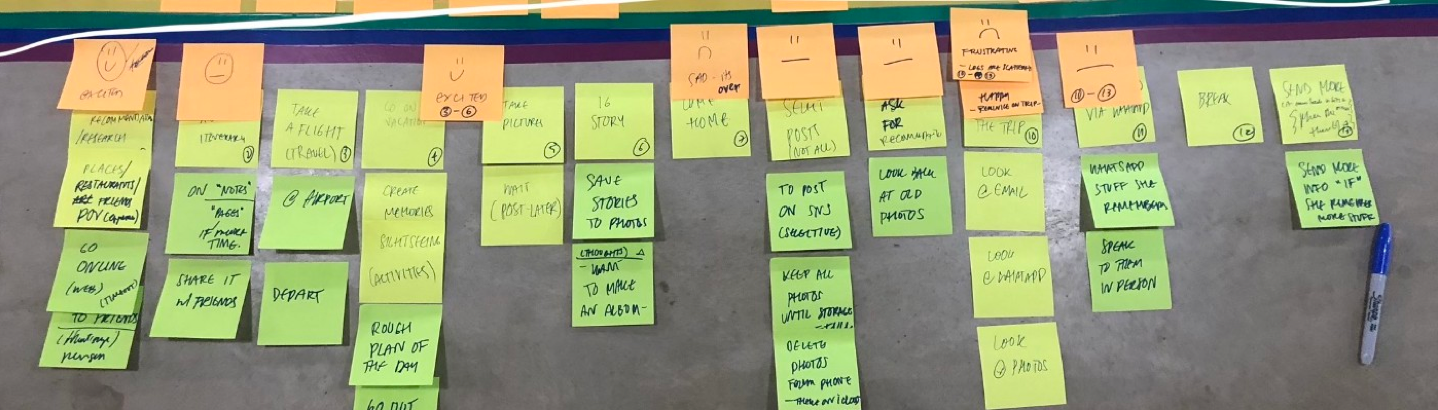 EXCITED
RECOMMENDATION
/RESEARCH
PLACES/
RESTAURANTS/
FRIEND
POV
GO
ONLINE
(WEB)
TO FRIENDS
person
ITINERARY
②
ON "NOTES"
"PAGES"
IF MORE
TIME.
SHARE IT
w/ FRIENDS
TAKE
A FLIGHT
(TRAVEL) ③
@ AIRPORT
DEPART
GO ON
VACATION
④
CREATE
MEMORIES
SIGHTSEEING
(ACTIVITIES)
ROUGH
PLAN OF
THE DAY
GO OUT
EXCITED
⑤-⑥
TAKE
PICTURES
⑤
WAIT
(POST-LATER)
IG
STORY
⑥
SAVE
STORIES
TO PHOTOS
(THOUGHTS)
- WANT
TO MAKE
AN ALBUM-
SAD - its
over
COME
HOME
⑦
SELECT
POSTS
(NOT ALL)
TO POST
ON SNS
(SELECTIVE)
KEEP ALL
PHOTOS
UNTIL STORAGE
DELETE
PHOTOS
FROM PHONE
- THERE ON ICLOUD
ASK
FOR
LOOK BACK
AT OLD
PHOTOS
FRUSTRATING
- LOGS ARE SCATTERED
HAPPY
- REMINISCE ON TRIP
THE TRIP
⑩
LOOK
@ EMAIL
LOOK
@ WHATSAPP
LOOK
@ PHOTOS
⑩-⑬
VIA WHATSAPP
⑪
WHATSAPP
STUFF SHE
REMEMBERS
SPEAK
TO THEM
IN PERSON
BREAK
⑫
SEND MORE
SEND MORE
INFO "IF"
SHE REMEMBER
MORE STUFF